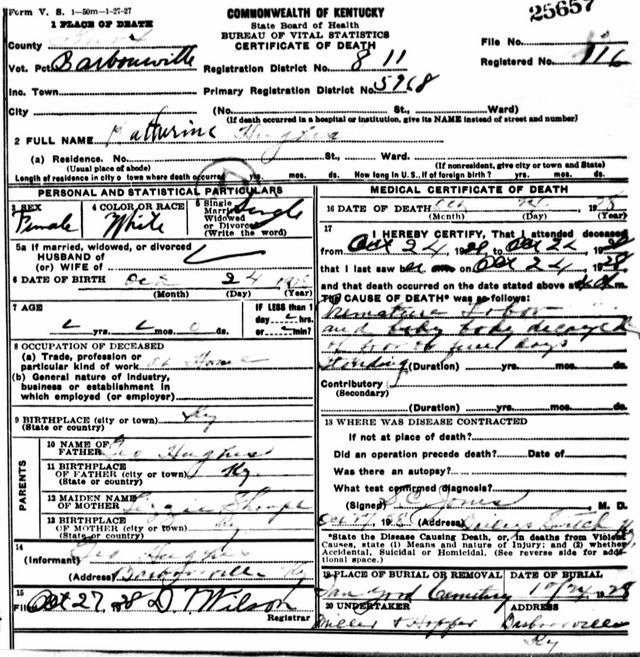 Form V. S. 1-50m-1-27-27
COMMONWEALTH OF KENTUCKY
State Board of Health
BUREAU OF VITAL STATISTICS
CERTIFICATE OF DEATH
25657
1 PLACE OF DEATH
County
Vot. Pct. Barbourville
Inc. Town
City
Registration District No. 811
Primary Registration District No. 5968
File No.
Registered No. 116
(No. St., Ward)
(If death occurred in a hospital or institution, give its NAME instead of street and number)
2 FULL NAME Katherine Hughes
(a) Residence. No. St., Ward.
(Usual place of abode) (If nonresident, give city or town and State)
Length of residence in city or town where death occurred yrs. mos. ds. How long in U.S., if of foreign birth? yrs. mos. ds.
PERSONAL AND STATISTICAL PARTICULARS
3 SEX
Female
4 COLOR OR RACE
White
5 Single
Married
Widowed
or Divorced
(Write the word)
Single
5a If married, widowed, or divorced
HUSBAND of
(or) WIFE of
6 DATE OF BIRTH Oct 24
(Month) (Day) (Year)
7 AGE
yrs. mos. ds.
IF LESS than 1
day hrs.
or min?
8 OCCUPATION OF DECEASED
(a) Trade, profession or
particular kind of work at Home
(b) General nature of industry,
business or establishment in
which employed (or employer)
9 BIRTHPLACE (city or town) Ky
(State or country)
PARENTS
10 NAME OF
FATHER Geo Hughes
11 BIRTHPLACE
OF FATHER (city or town) Ky.
(State or country)
12 MAIDEN NAME
OF MOTHER
13 BIRTHPLACE
OF MOTHER (city or town) Ky
(State or country)
14
(Informant) Geo Hughes
(Address) Barbourville Ky
15
Filed Oct 27, 28 D. Wilson
Registrar
MEDICAL CERTIFICATE OF DEATH
16 DATE OF DEATH Oct 24 1928
(Month) (Day) (Year)
17
I HEREBY CERTIFY, That I attended deceased
from Oct 24, 1928, to Oct 24, 1928
that I last saw her on Oct 24, 1928,
and that death occurred on the date stated above at m.
The CAUSE OF DEATH* was as follows:
Premature Labor
and baby body decayed
of few days
Standing (Duration) yrs. mos. ds.
Contributory
(Secondary)
(Duration) yrs. mos. ds.
18 WHERE WAS DISEASE CONTRACTED
If not at place of death?
Did an operation precede death? Date of
Was there an autopsy?
What test confirmed diagnosis?
(Signed) Jones M. D.
Oct 27, 1928 (Address) Ky
*State the Disease Causing Death, or, in deaths from Violent
Causes, state (1) Means and nature of Injury; and (2) whether
Accidental, Suicidal or Homicidal. (See reverse side for additional space.)
19 PLACE OF BURIAL OR REMOVAL
DATE OF BURIAL
Cemetery 10/24 1928
20 UNDERTAKER
ADDRESS
Miller & Hopper Barbourville
Ky